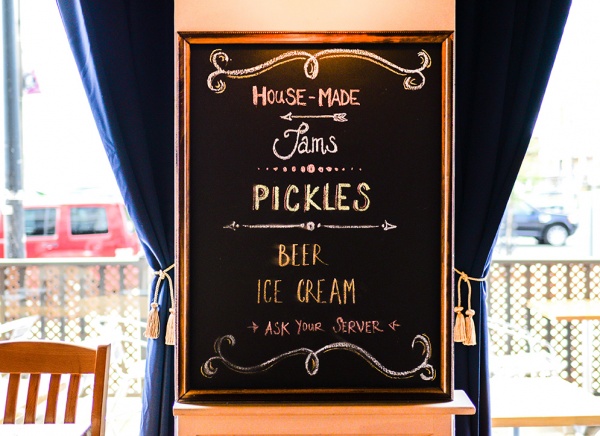 HOUSE-MADE
Jams
PICKLES
BEER
ICE CREAM
ASK YOUR SERVER